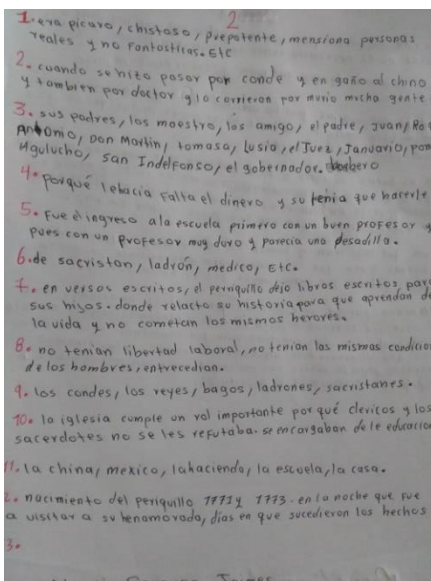 2
1. era pícaro, chistoso, prepotente, mensiona personas
reales y no Fantasticas. Etc
2. cuando se hizo pasar por conde y en gaño al chino
y tambien por doctor y lo corrieron por murio mucha gente
3. sus padres, los maestro, los amigo, el padre, Juan,
Antomo, Don Martin, tomasa, Lusia, el Juez, Januario,
Agulucho, San Indelfonso, el gobernador. barbero
4. porqué le hacia Falta el dinero y su tenia que hacerle
5. Fue el ingreso ala escuela primero con un buen profesor y
pues con un profesor muy duro y parecia una desadilla.
6. de sacristan, ladrón, medico, Etc.
7. en versos escritos, el periquillo dejo libros escritos, para
sus hijos. donde relacto su historia para que aprendan de
la vida y no cometan los mismos herores.
8. no tenian libertad laboral, no tenian las mismas condicio
de los hombres, entrecedian.
9. los condes, los reyes, bagos, ladrones, sacristanes.
10. la iglesia cumple un rol importante por qué clericos y los
sacerdotes no se les refutaba. se encargaban de le educacion
11. la china, mexico, la hacienda, la escuela, la casa.
2. nacimiento del periquillo 1771 y 1773. en la noche que fue
a visitar a su henamorada, días en que sucedieron los hechos
3.